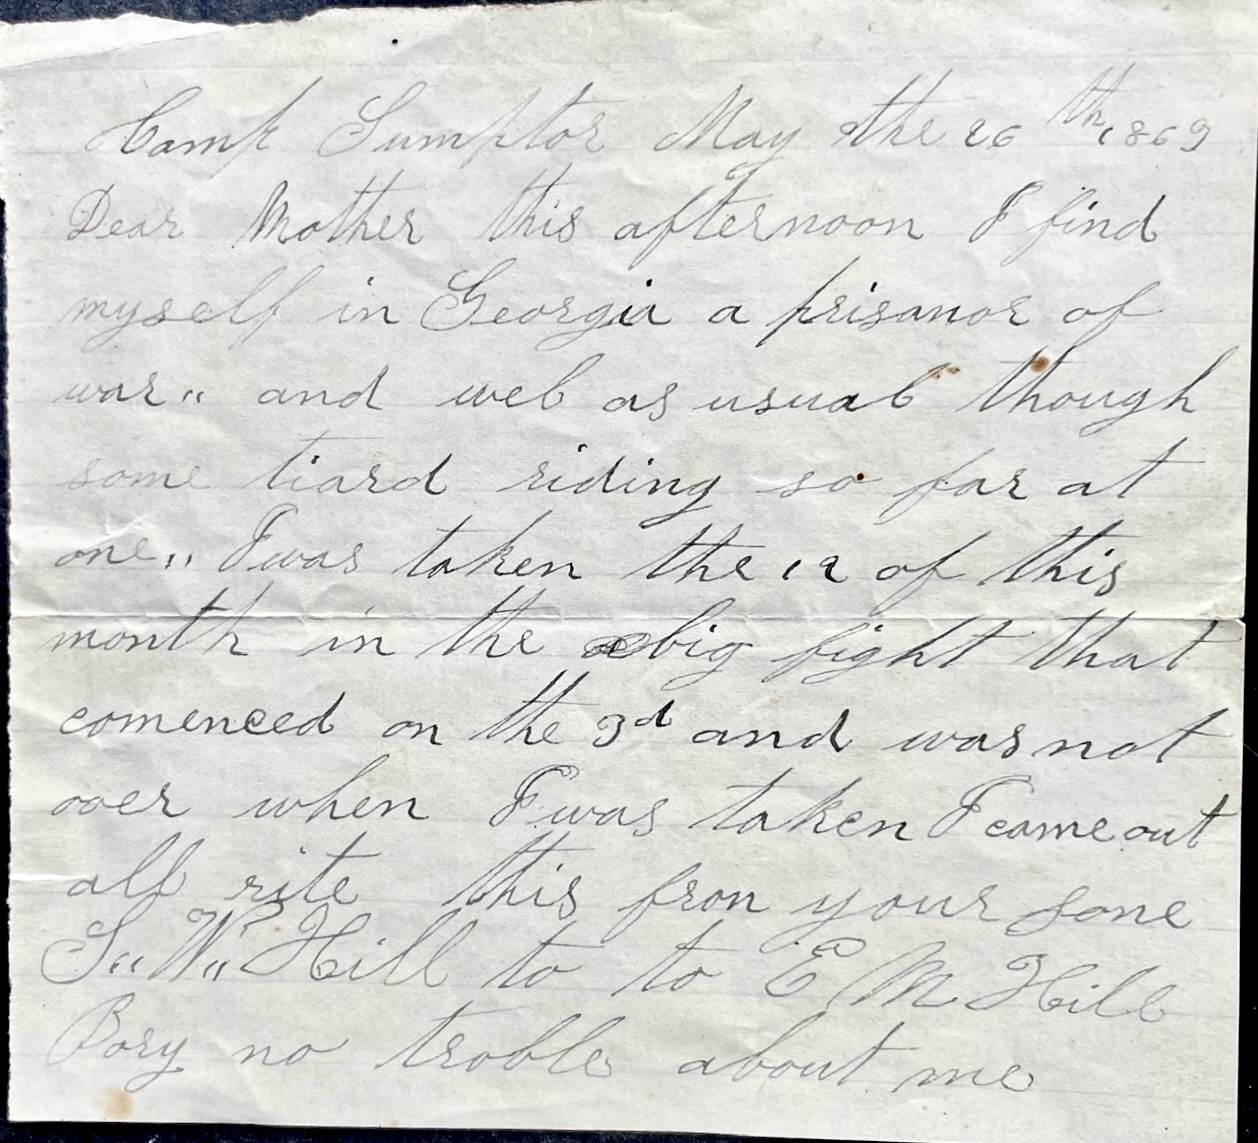 Camp Sumptor May the 26th, 1869
Dear Mother this afternoon I find
myself in Georgia a prisanor of
war,, and wel as usual though
some tiard riding so far at
one,, I was taken the 12 of this
month in the big fight that
comenced on the 3d and was not
over when I was taken I came out
all rite this fron your sone
S,, W,, Hill to to E M Hill
Bory no troble about me